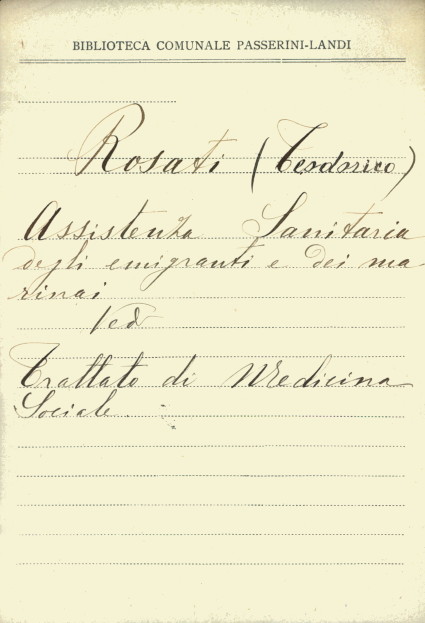 BIBLIOTECA COMUNALE PASSERINI-LANDI
Rosati (Teodorico)
Assistenza Sanitaria
degli emigranti e dei ma
rinai
Ved
Trattato di Medicina
Sociale.